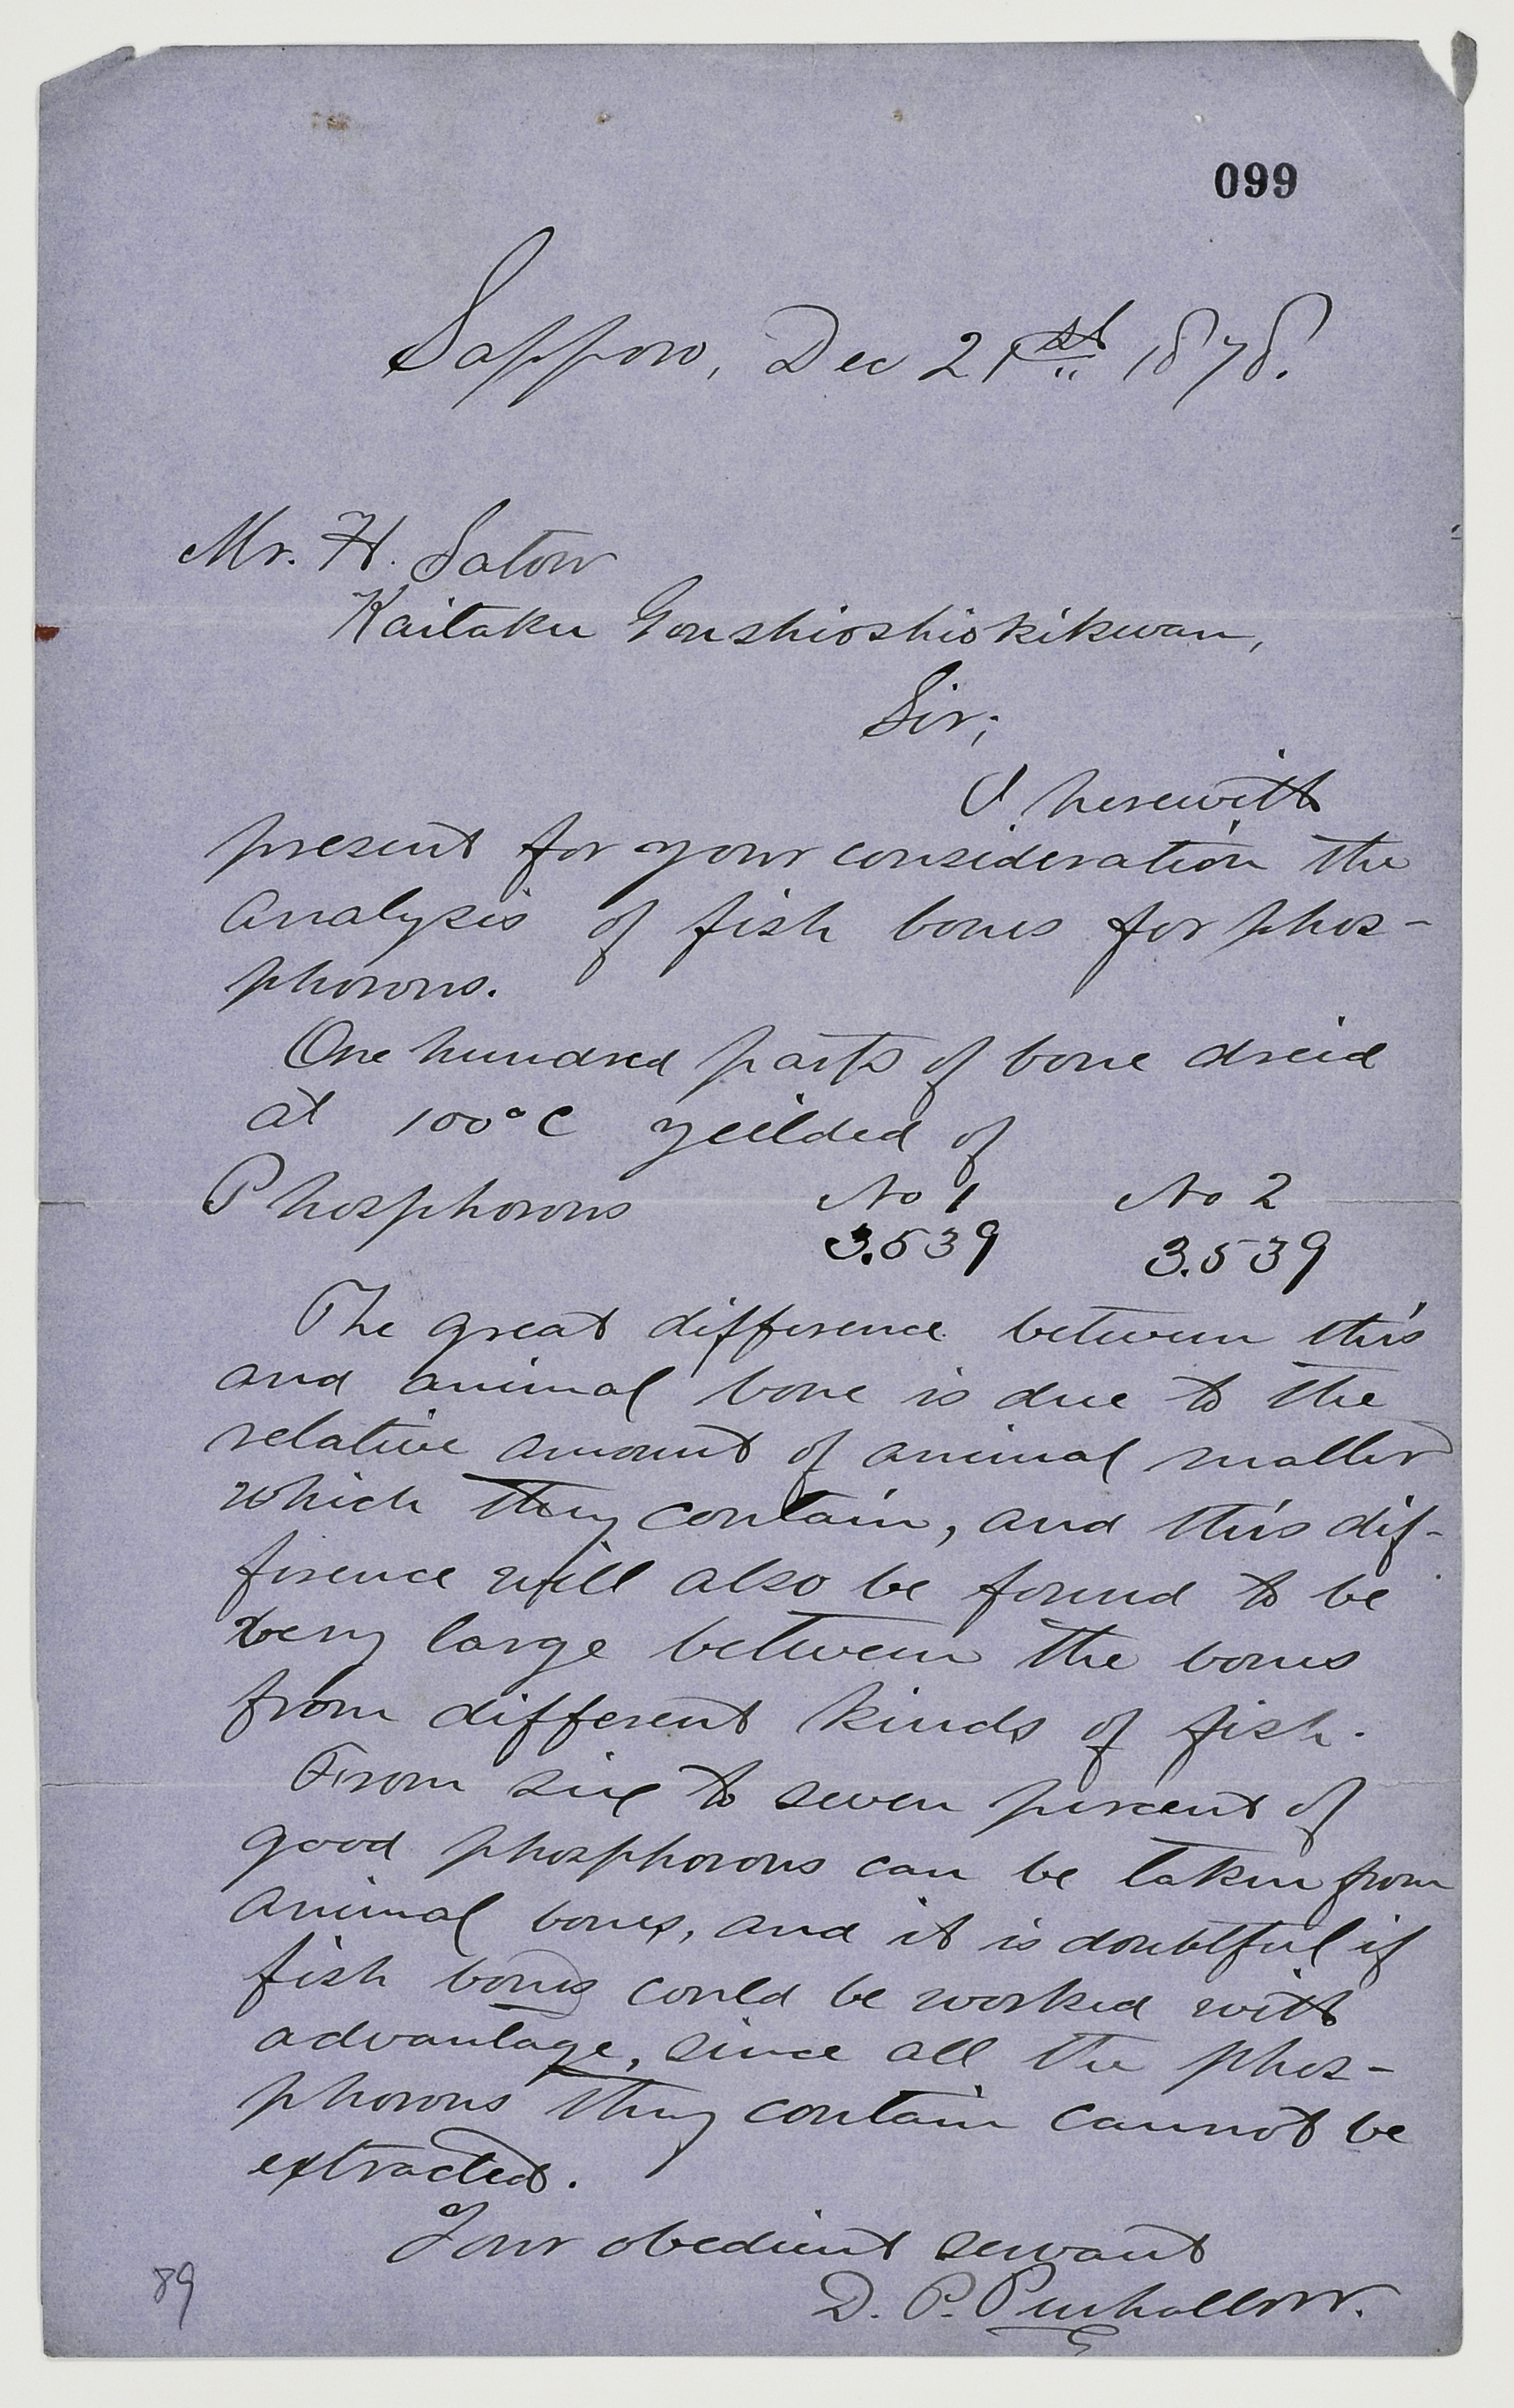 099
Sapporo, Dec 21st 1878.
Mr. H. Satow
Kaitaku Gonshioshiokikwan,
Sir;
I herewith
present for your consideration the
analysis of fish bones for phos-
phorous.
One hundred parts of bone dreid
at 100°C yeilded of
Phosphorous No 1 No 2
3.539 3.539
The great difference between this
and animal bone is due to the
relative amount of animal matter
which they contain, and this dif-
ference will also be found to be
very large between the bones
from different kinds of fish.
From six to seven percent of
good phosphorous can be taken from
animal bones, and it is doubtful if
fish bones could be worked with
advantage, since all the phos-
phorous they contain cannot be
extracted.
Your obedient servant
D. P. Penhallow.
89